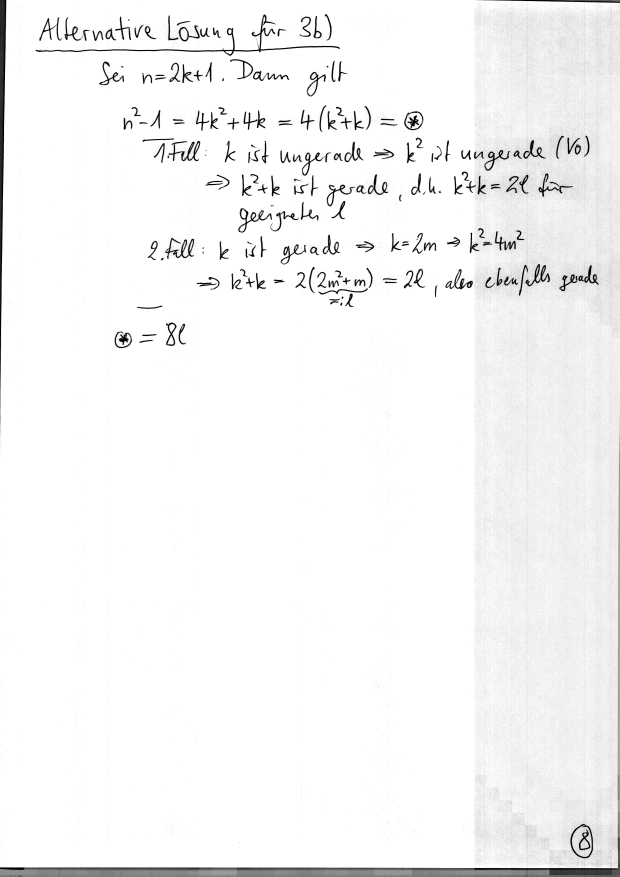 Alternative Lösung für 3b)
Sei n=2k+1. Dann gilt
n²-1 = 4k²+4k = 4(k²+k) = ⊛
1.Fall: k ist ungerade ⇒ k² ist ungerade (Vo)
⇒ k²+k ist gerade, d.h. k²+k = 2l für
geeignetes l
2.Fall: k ist gerade ⇒ k=2m ⇒ k²=4m²
⇒ k²+k = 2(2m²+m) = 2l, also ebenfalls gerade
=:l
⊛ = 8l
8